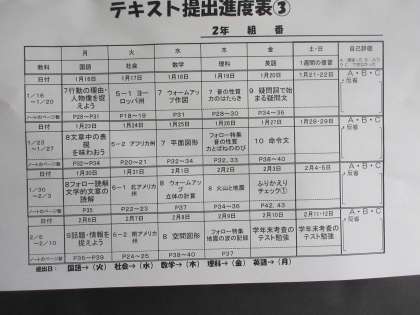 テキスト提出進度表③
2年 組 番
月 火 水 木 金 土・日 自己評価
教科 国語 社会 数学 理科 英語 1週間の復習
日付 1月16日 1月17日 1月18日 1月19日 1月20日 1月21-22日 A・B・C
1/16 ～1/20 7行動の理由・人物像を捉えよう 5－1 ヨーロッパ州 7 ウォームアップ作図 7 音の性質 力のはたらき 9 疑問詞で始まる疑問文 反省
ノートのページ数 P28～P31 P18～19 P31 P28～30 P34～36
日付 1月23日 1月24日 1月25日 1月26日 1月27日 1月28-29日 A・B・C
1/23 ～1/27 8文章中の表現を味わおう 5－2 アフリカ州 7 平面図形 フォロー特集 音の性質 力とばねののび 10 命令文 反省
ノートのページ数 P32～P34 P20～21 P32～34 P32, 33 P38～40
日付 1月30日 1月31日 2月1日 2月2日 2月3日 2月4-5日 A・B・C
1/30 ～2/3 8フォロー読解 文学的文章の読解 6－1 北アメリカ州 8 ウォームアップ 立体の計算 8 火山と地震 ふりかえりチェック① 反省
ノートのページ数 P35 P22～23 P37 P34～36 P42, 43
日付 2月6日 2月7日 2月8日 2月9日 2月10日 2月11-12日 A・B・C
2/6 ～2/10 9話題・情報を捉えよう 6－2 南アメリカ州 8 空間図形 フォロー特集 地震の波の記録 学年末考査のテスト勉強 学年末考査のテスト勉強 反省
ノートのページ数 P36～P39 P24～25 P38～40 P37
提出日： 国語→（火） 社会→（水） 数学→（木） 理科→（金） 英語→（月）